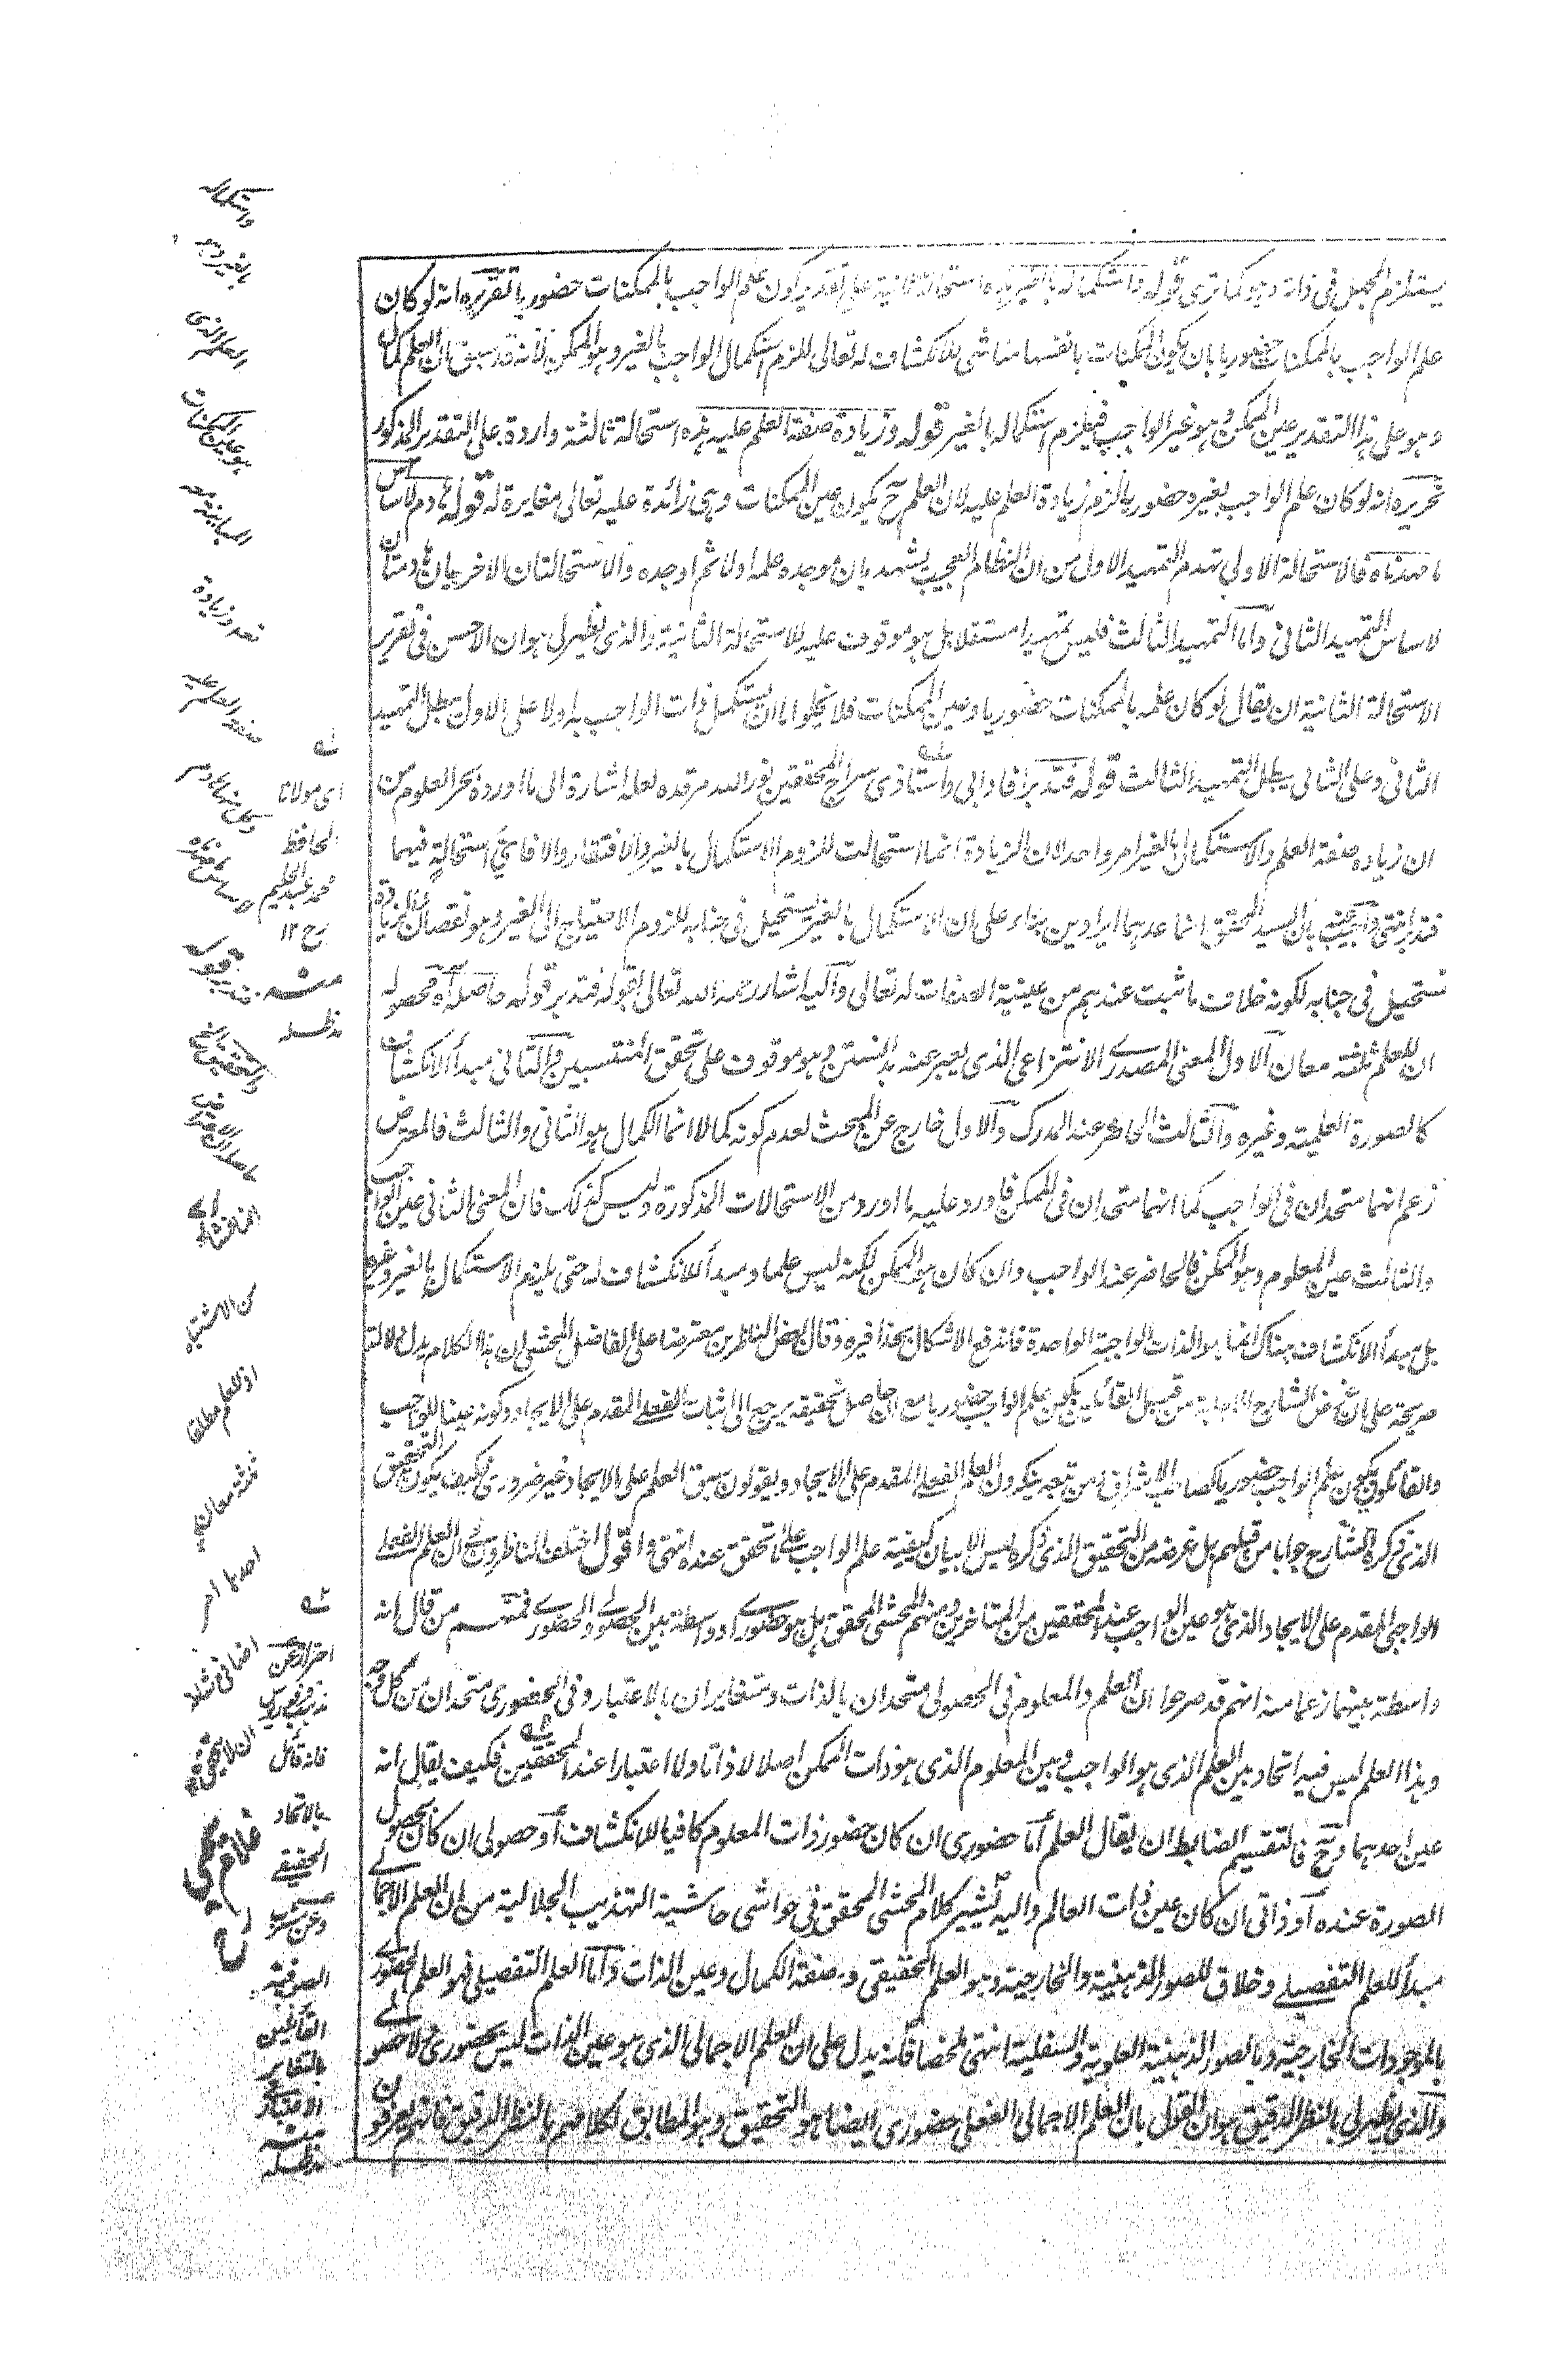 يستلزم الجهل في ذاته وهو كما ترى قوله واستكماله بالغير هذه استحالة ثانية على تقدير كون علم الواجب بالممكنات حضوريا تقريره انه لو كان
علم الواجب بالممكنات حضوريا بان يكون الممكنات بانفسها مناشى للانكشاف له تعالى للزم استكمال الواجب بالغير وهو الممكن لأنه قد سبق ان العلم كمال
وهو على هذا التقدير عين الممكن وهو غير الواجب فيلزم استكماله بالغير قوله وزيادة صفة العلم عليه هذه استحالة ثالثة واردة على التقدير المذكور
تحريره انه لو كان علم الواجب بغيره حضوريا لزم زيادة العلم عليه لان العلم ح يكون عين الممكنات وهي زائدة عليه تعالى مغايرة له قوله هادم لاساس
ما مهدناه فالاستحالة الاولى تهدم التمهيد الاول من ان النظام العجيب يشهد بان موجده علمه اولا ثم اوجده والاستحالتان الاخريان هادمتان
لاساس التمهيد الثاني واما التمهيد الثالث فليس تمهيدا مستقلا بل هو موقوف عليه للاستحالة الثانية والذي يظهر لي هو ان الاحسن في تقرير
الاستحالة الثانية ان يقال لو كان علمه بالممكنات حضوريا وعين الممكنات فلا يخلو اما ان يستكمل ذات الواجب به اولا على الاول يبطل التمهيد
الثاني وعلى الثاني يبطل التمهيد الثالث قوله فتدبر افاد ابي واستاذي سراج المحققين نور الله مرقده لعله اشارة الى ما اورده بحر العلوم من
ان زيادة صفة العلم والاستكمال بالغير امر واحد لان الزيادة انما استحالت للزوم الاستكمال بالغير والافتقار والا فاي استحالة فيهما
فتدبر انتهى واجيب بان السيد المحقق انما عدهما ايرادين بناء على ان الاستكمال بالغير يستحيل في جنابه للزوم الاحتياج الى الغير وهو نقصان والزيادة
تستحيل في جنابه لكونه خلاف ما ثبت عندهم من عينية الصفات له تعالى واليه اشار رحمه الله تعالى بقوله فتدبر قوله حاصله آه محصوله
ان للعلم ثلثة معان الاول المعنى المصدري الانتزاعي الذي يعبر عنه بدانستن وهو موقوف على تحقق المنتسبين والثاني مبدأ الانكشاف
كالصورة العلمية وغيره والثالث الحاضر عند المدرك والاول خارج عن المبحث لعدم كونه كمالا انما الكمال هو الثاني والثالث فالمعترض
زعم انهما متحدان في الواجب كما انهما متحدان في الممكن فاورد عليه ما اورد من الاستحالات المذكورة وليس كذلك فان المعنى الثاني عين الواجب
والثالث عين المعلوم وهو الممكن فالحاضر عند الواجب وان كان هو الممكن لكنه ليس علما ومبدأ للانكشاف له حتى يلزم الاستكمال بالغير وغيره
بل مبدأ الانكشاف هناك انما هو الذات الواجبة الواحدة فاندفع الاشكال بحذافيره وقال بعض الناظرين معترضا على الفاضل المحشي ان هذا الكلام يدل دلالة
صريحة على ان غرض الشارح الاجابة من قبيل القائلين بكون علم الواجب حضوريا مع ان حاصل تحقيقه يرجع الى اثبات الفعلي المقدم على الايجاد وكونه عينا للواجب
والقائلون بكون علم الواجب حضوريا كصاحب الاشراق ومن تبعه ينكرون العلم الفعلي المقدم على الايجاد ويقولون سبق العلم على الايجاد غير ضروري فكيف يكون التحقيق
الذي ذكره الشارح جوابا من قبلهم بل غرضه من التحقيق الذي ذكره ليس الا بيان كيفية علم الواجب على ما تحقق عنده انتهى واقول اختلف الناظرون في ان العلم الفعلي
الواجبي المقدم على الايجاد الذي هو عين الواجب عند المحققين من المتاخرين ومنهم المحشي المحقق هل هو حضوري او واسطة بين الحصولي والحضوري فمنهم من قال انه
واسطة بينهما زعما منه انهم قد صرحوا ان العلم والمعلوم في الحصولي متحدان بالذات ومتغايران بالاعتبار وفي الحضوري متحدان من كل وجه
وهذا العلم ليس فيه اتحاد بين العلم الذي هو الواجب وبين المعلوم الذي هو ذات الممكن اصلا لا ذاتا ولا اعتبارا عند المحققين فكيف يقال انه
عين احدهما وح فالتقسيم الضابط ان يقال العلم اما حضوري ان كان حضور ذات المعلوم كافيا للانكشاف او حصولي ان كان بحصول
الصورة عنده او ذاتي ان كان عين ذات العالم واليه يشير كلام المحشي المحقق في حواشي حاشية التهذيب الجلالية من ان العلم الاجمالي
مبدأ للعلم التفصيلي وخلاق للصور الذهنية والخارجية وهو العلم الحقيقي وصفة الكمال وعين الذات واما العلم التفصيلي فهو العلم الحضوري
بالموجودات الخارجية وبالصور الذهنية العلوية والسفلية انتهى ملخصا فانه يدل على ان العلم الاجمالي الذي هو عين الذات ليس بحضوري ولا حصولي
والذي يظهر لي بالنظر الدقيق هو ان القول بان العلم الاجمالي الفعلي حضوري ايضا هو التحقيق وهو المطابق لكلامهم بالنظر الدقيق فانهم يعرفون
واستكماله
بالغير وهو
العلم الذي
هو عين الممكنات
المباينة له
وزيادة
صفة العلم عليه
وكل منهما هادم
لاساس ما مهدناه
فتدبر قوله
والتحقيق الخ
حاصله ان الاعتراض
انما نشأ
من الاشتباه
اذ للعلم مطلقا
ثلثة معان
احدها امر
اضافي
ای مولانا
الحافظ
محمد عبد الحليم
رح ١٢
منه
مد ظله
احتراز عن
مذهب فرفوريوس
فانه قائل
بالاتحاد
الحقيقي
وعن مشرب
الصوفية
القائلين
بالتغاير
الاعتباري
منه
مد ظله